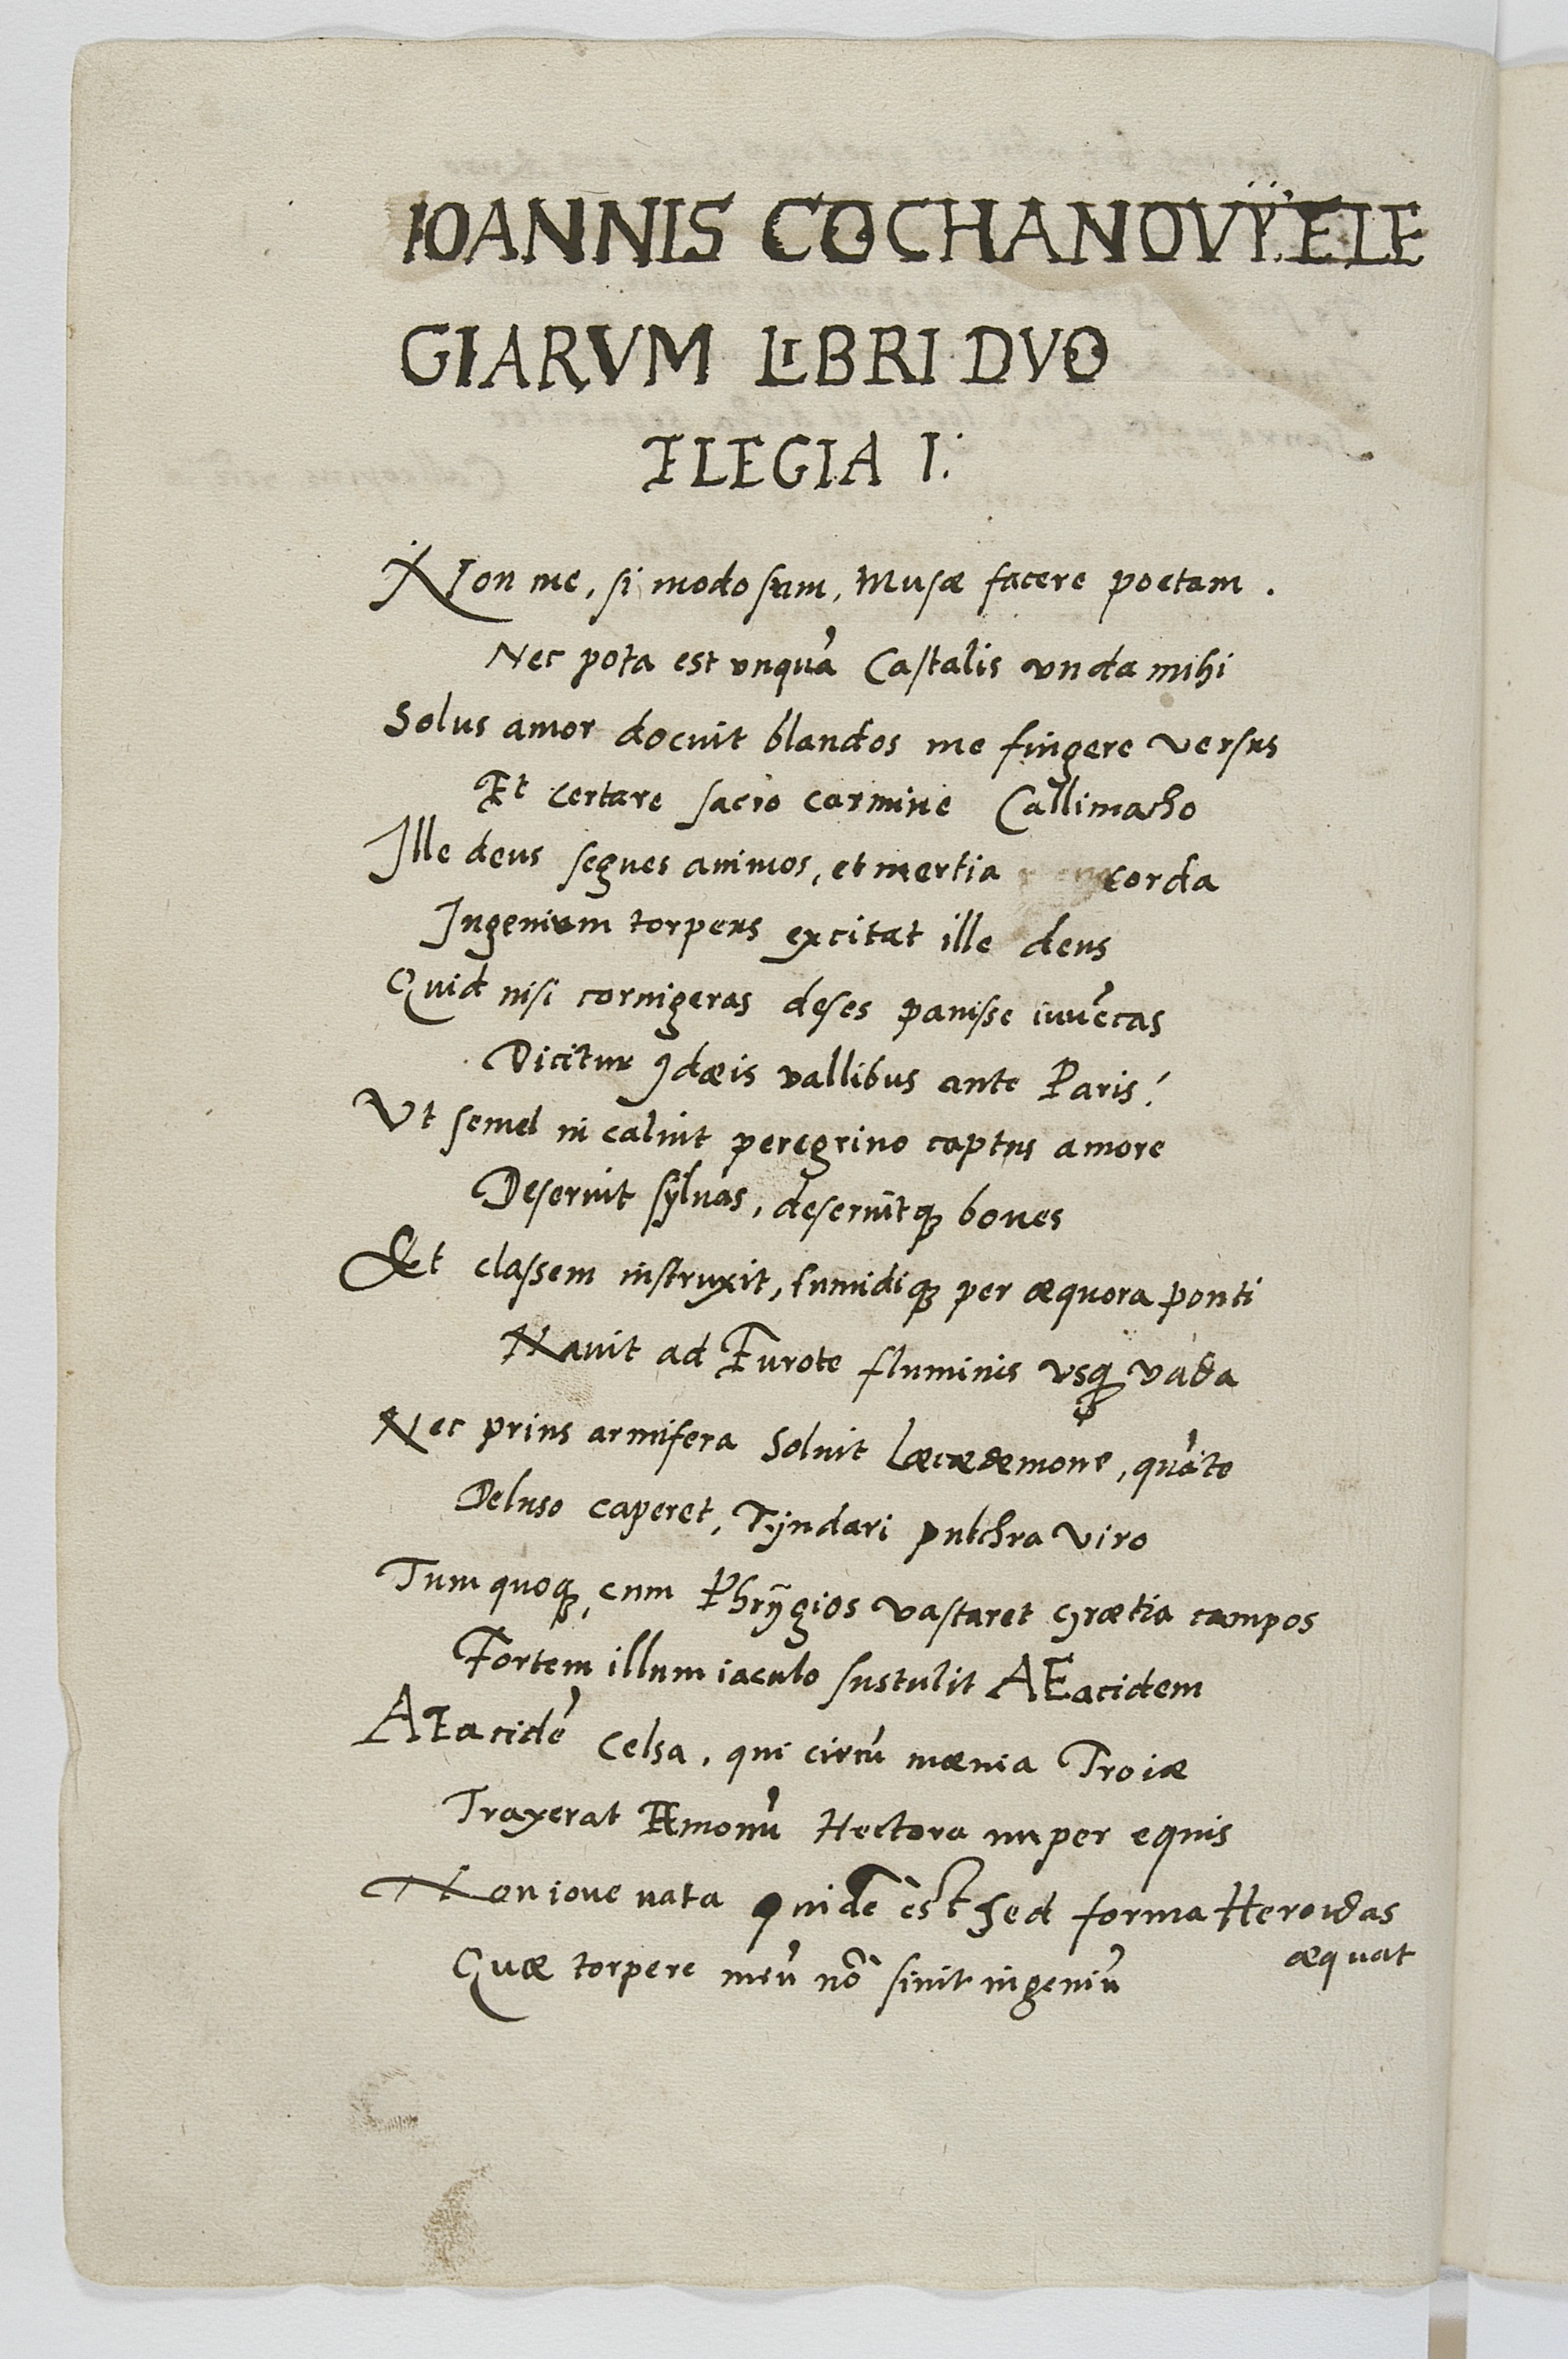 IOANNIS COCHANOVŸ ELE
GIARVM LIBRI DVO
ELEGIA I.
Non me, si modo sum, Musæ facere poetam.
Nec pota est vnquā Castalis vnda mihi
Solus amor docuit blandos me fingere versus
Et certare sacro carmine Callimacho
Ille deus segnes animos, et inertia corda
Ingenium torpens excitat ille deus
Quid nisi cornigeras deses pauisse iuuēcas
Dicitur Idæis vallibus ante Paris?
Vt semel in caluit peregrino captus amore
Deseruit sÿluas, deseruitq3 boues
Et classem instruxit, tumidiq3 per æquora ponti
Nauit ad Eurote fluminis vsq3 vada
Nec prius armifera soluit Lacædemone, quā te
Deluso caperet, Tÿndari pulchra viro
Tum quoq3, cum Phrÿgios vastaret Grætia campos
Fortem illum iaculo sustulit AEacidem
AEacidē celsa, qui circū mænia Troiæ
Traxerat Æmonŭ Hectora nuper equis
Non ioue nata quidē est sed forma Heroidas
æquat
Quæ torpere meū nō sinit ingeniū